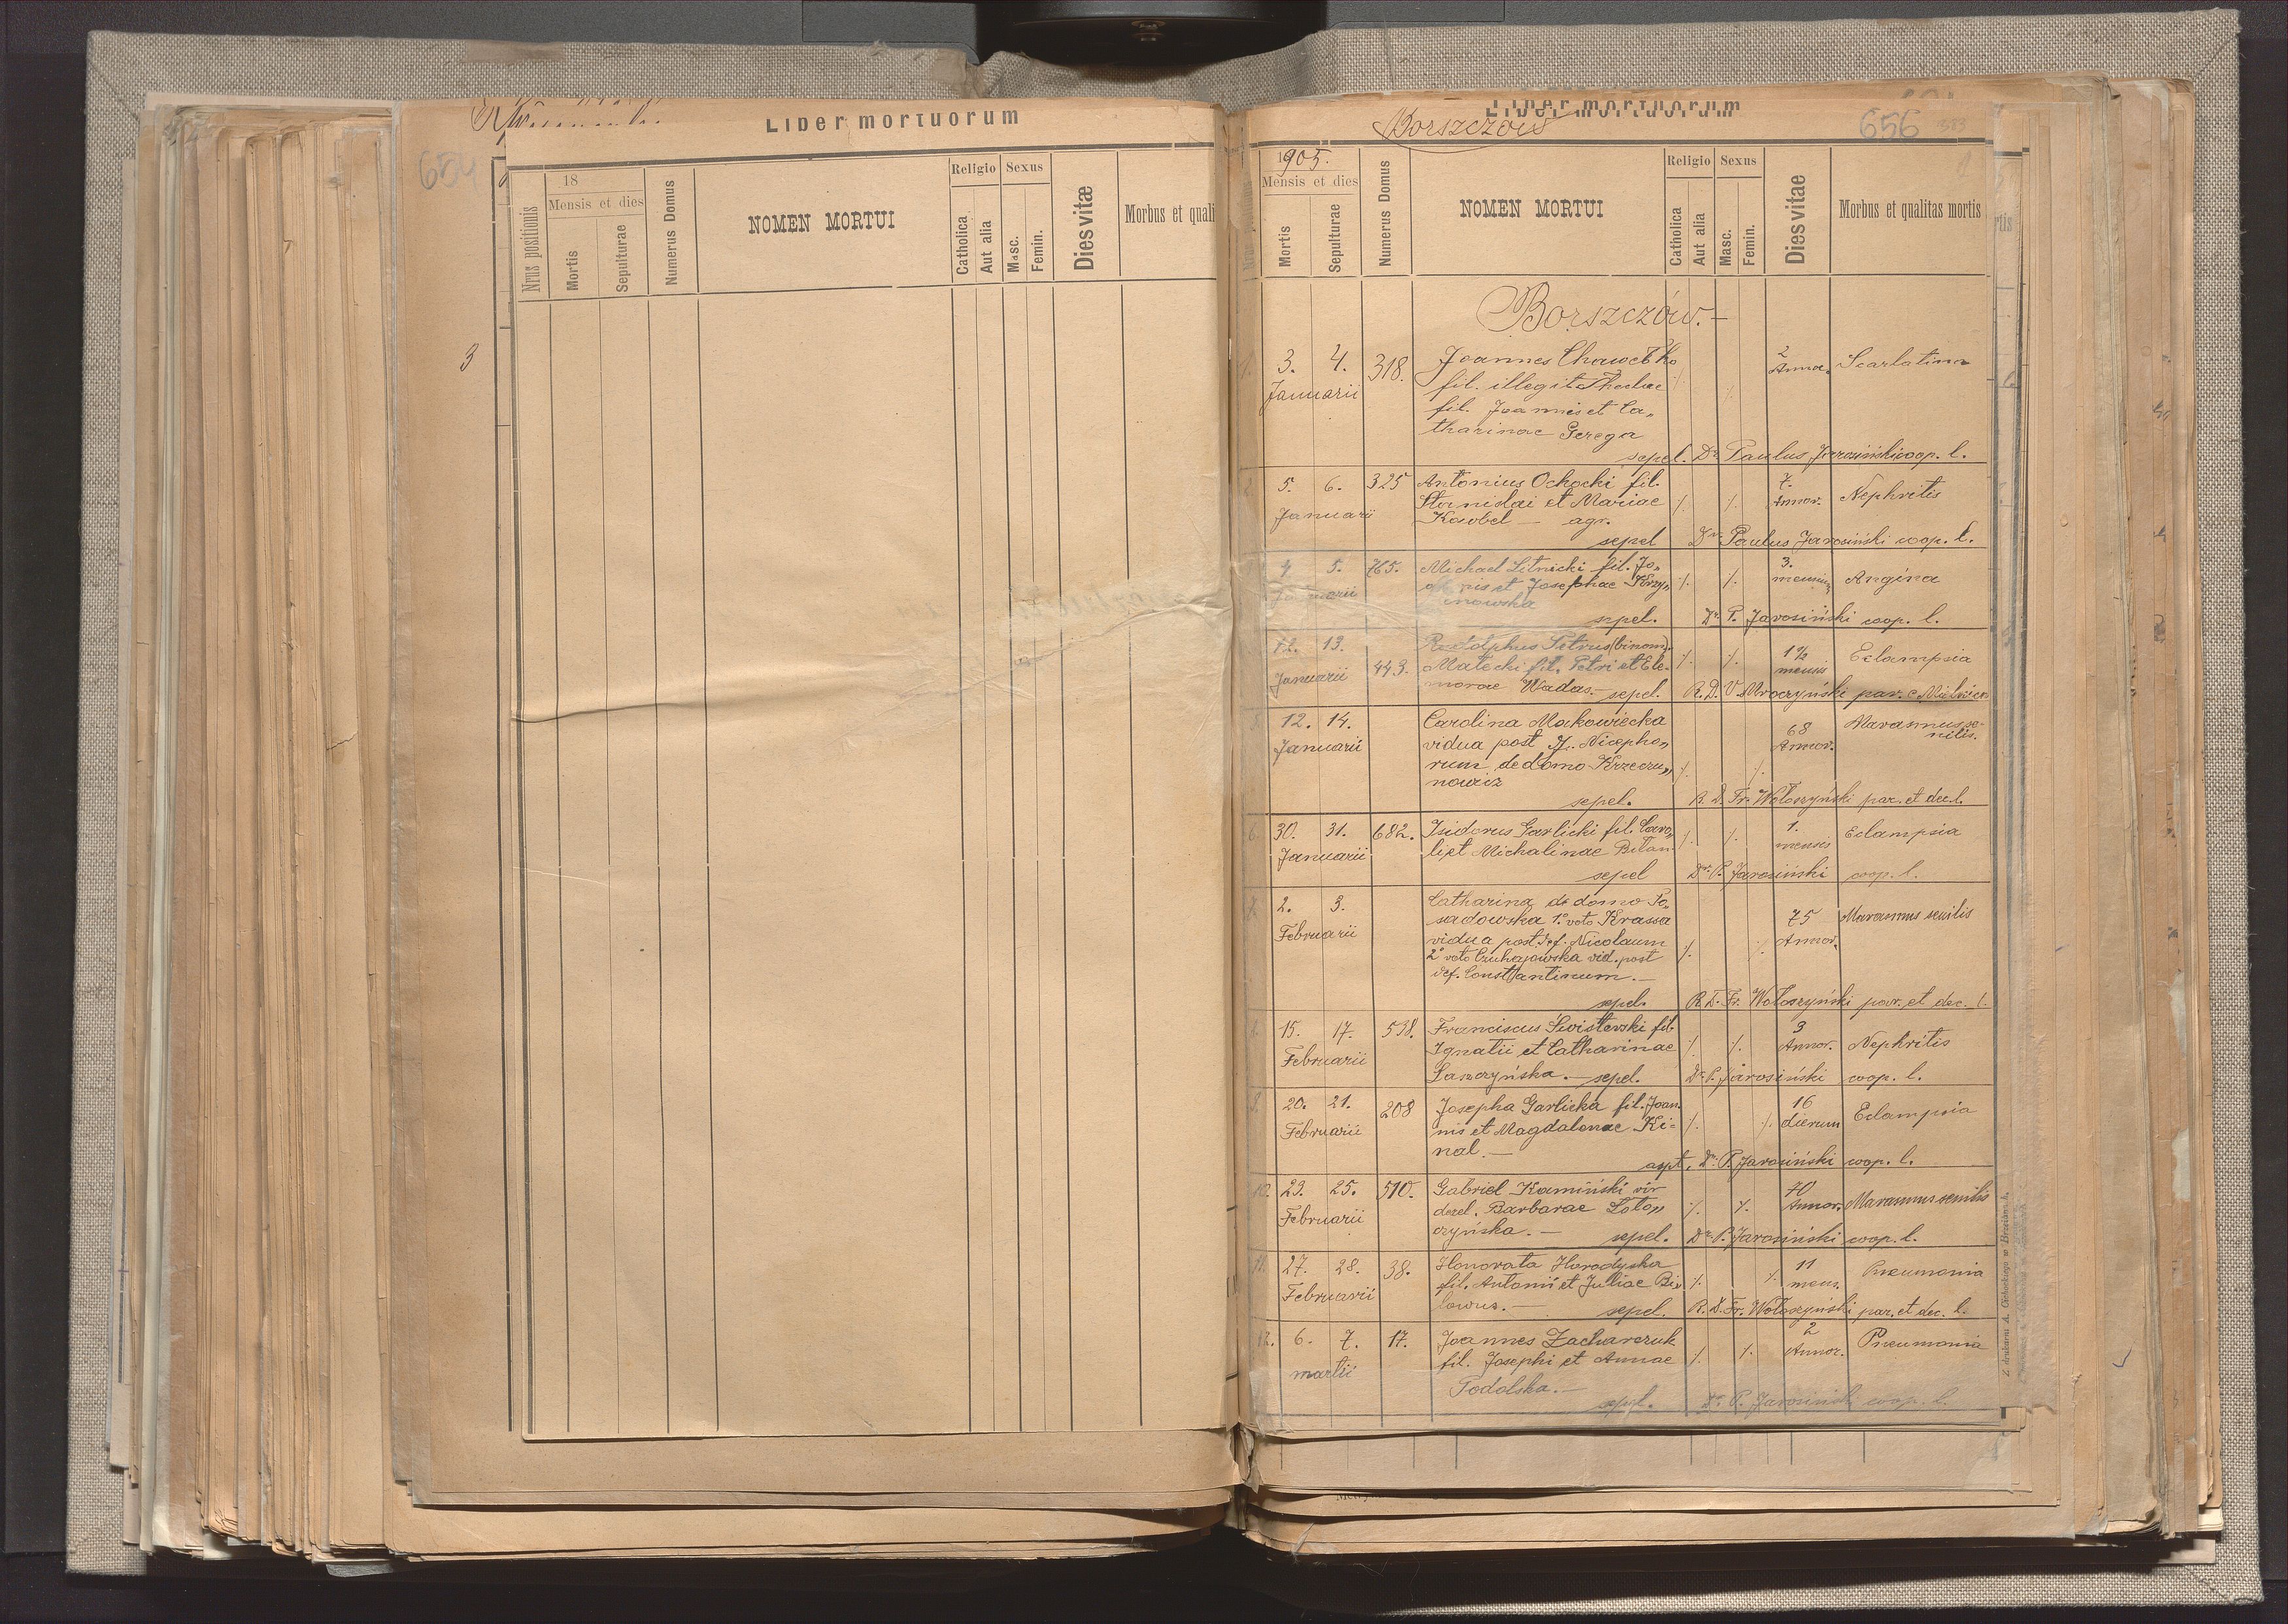 Liber mortuorum
654
3
Nrus positionis
18
Mensis et dies
Mortis
Sepulturae
Numerus Domus
NOMEN MORTUI
Religio
Catholica
Aut alia
Sexus
Masc.
Femin.
Dies vitæ
Morbus et quali
Liber mortuorum
Borszczów
656
1905.
Mensis et dies
Mortis
Sepulturae
Numerus Domus
NOMEN MORTUI
Religio
Catholica
Aut alia
Sexus
Masc.
Femin.
Dies vitae
Morbus et qualitas mortis
Borszczów.-
1. 3. 4. 318. Joannes 2 Scarlatina
Januarii fil. illegit. Theclae Annor.
fil. Joannis et Ca„
tharinae Gerega
sepel. Dr. Paulus Jarosiński coop. l.
2. 5. 6. 325 Antonius Ochocki fil. 7. Nephritis
Januarii Stanislai et Mariae Annor.
Kaobel — agr.
sepel Dr. Paulus Jarosiński coop. l.
4. 5. 765. Michael Letnicki fil. Jo„ 3. Angina
Januarii nis et Josephae Krzy„ mensium
nowska
sepel. Dr. P. Jarosiński coop. l.
12. 13. Rudolphus Petrus (binom). 1½ Eclampsia
Januarii 443. Małecki fil. Petri et Ele- mensis
norae Wadas.- sepel. R. D. V. Mroczyński par. e Mielnica
5. 12. 14. Carolina Makowiecka 68 Marasmus se-
Januarii vidua post J. Nicepho„ Annor. nilis.
rum de domo Krzeczu„
nowicz
sepel. R. D. Fr. Wołoszyński par. et dec. l.
6. 30. 31. 682. Isidorus Garlicki fil. Caro„ 1. Eclampsia
Januarii li et Michalinae Bilan mensis
sepel Dr. P. Jarosiński coop. l.
7. 2. 3. Catharina de domo Po„ 75 Marasmus senilis
Februarii sadowska 1° voto Krassa Annor.
vidua post def. Nicolaum
2° voto Czuhajowska vid. post
def. Constantinum.-
sepel. R. D. Fr. Wołoszyński par. et dec. l.
8. 15. 17. 538. Franciscus Świsterski fil. 3 Nephritis
Februarii Ignatii et Catharinae Annor.
Laszczyńska.- sepel. Dr. P. Jarosiński coop. l.
9. 20. 21. 208 Josepha Garlicka fil. Joan„ 16 Eclampsia
Februarii nis et Magdalenae Ki= dierum
nal.-
Dr. P. Jarosiński coop. l.
10. 23. 25. 510. Gabriel Kamiński vir 70 Marasmus senilis
Februarii derel. Barbarae Łoto„ Annor.
czyńska.- sepel. Dr. P. Jarosiński coop. l.
11. 27. 28. 38. Honorata Horodyska 11 Pneumonia
Februarii fil. Antonii et Juliae Bi„ mens.
lowus.- sepel. R. D. Fr. Wołoszyński par. et dec. l.
12. 6. 7. 17. Joannes Zacharczuk 2 Pneumonia
martii fil. Josephi et Annae Annor.
Podolska.-
sepel. Dr. P. Jarosiński coop. l.